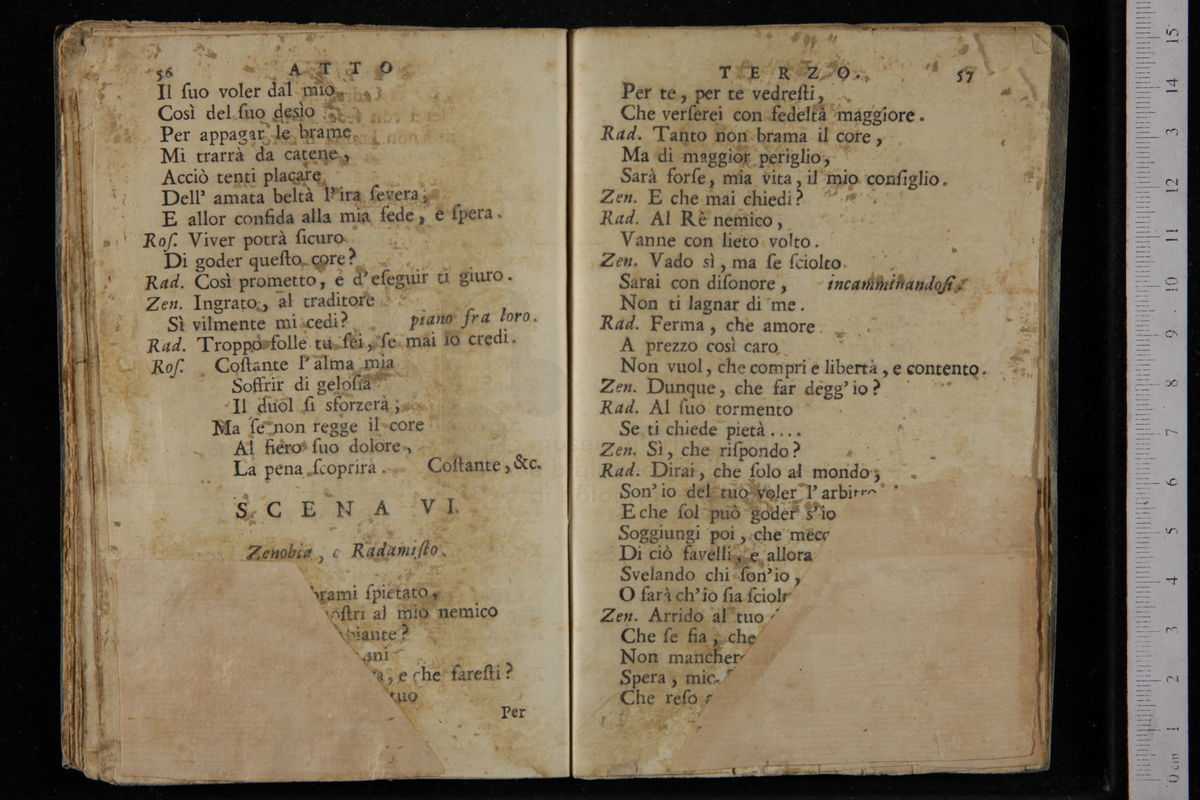 56 ATTO
Il ſuo voler dal mio
Così del ſuo desìo
Per appagar le brame
Mi trarrà da catene,
Acciò tenti placare
Dell' amata beltà l'ira ſevera;
E allor confida alla mia fede, e ſpera.
Roſ. Viver potrà ſicuro
Di goder queſto core?
Rad. Così prometto, e d'eſeguir ti giuro.
Zen. Ingrato, al traditore
Sì vilmente mi cedi? piano fra loro.
Rad. Troppo folle tu ſei, ſe mai io credi.
Roſ. Coſtante l'alma mia
Soffrir di geloſia
Il duol ſi sforzerà;
Ma ſe non regge il core
Al fiero ſuo dolore,
La pena ſcoprirà. Coſtante, &c.
SCENA VI.
Zenobia, e Radamiſto.
brami ſpietato,
oſtri al mio nemico
biante?
ani
, e che fareſti?
tuo
Per
TERZO. 57
Per te, per te vedreſti,
Che verſerei con fedeltà maggiore.
Rad. Tanto non brama il core,
Ma di maggior periglio,
Sarà forſe, mia vita, il mio conſiglio.
Zen. E che mai chiedi?
Rad. Al Rè nemico,
Vanne con lieto volto.
Zen. Vado sì, ma ſe ſciolto
Sarai con diſonore, incamminandoſi.
Non ti lagnar di me.
Rad. Ferma, che amore
A prezzo così caro
Non vuol, che compri e libertà, e contento.
Zen. Dunque, che far degg'io?
Rad. Al ſuo tormento
Se ti chiede pietà....
Zen. Sì, che riſpondo?
Rad. Dirai, che ſolo al mondo;
Son'io del tuo voler l'arbitro
E che ſol può goder s'io
Soggiungi poi, che meco
Di ciò favelli, e allora
Svelando chi ſon'io,
O farà ch'io ſia ſciolt
Zen. Arrido al tuo
Che ſe fia, che
Non mancher
Spera, mio
Che reſo